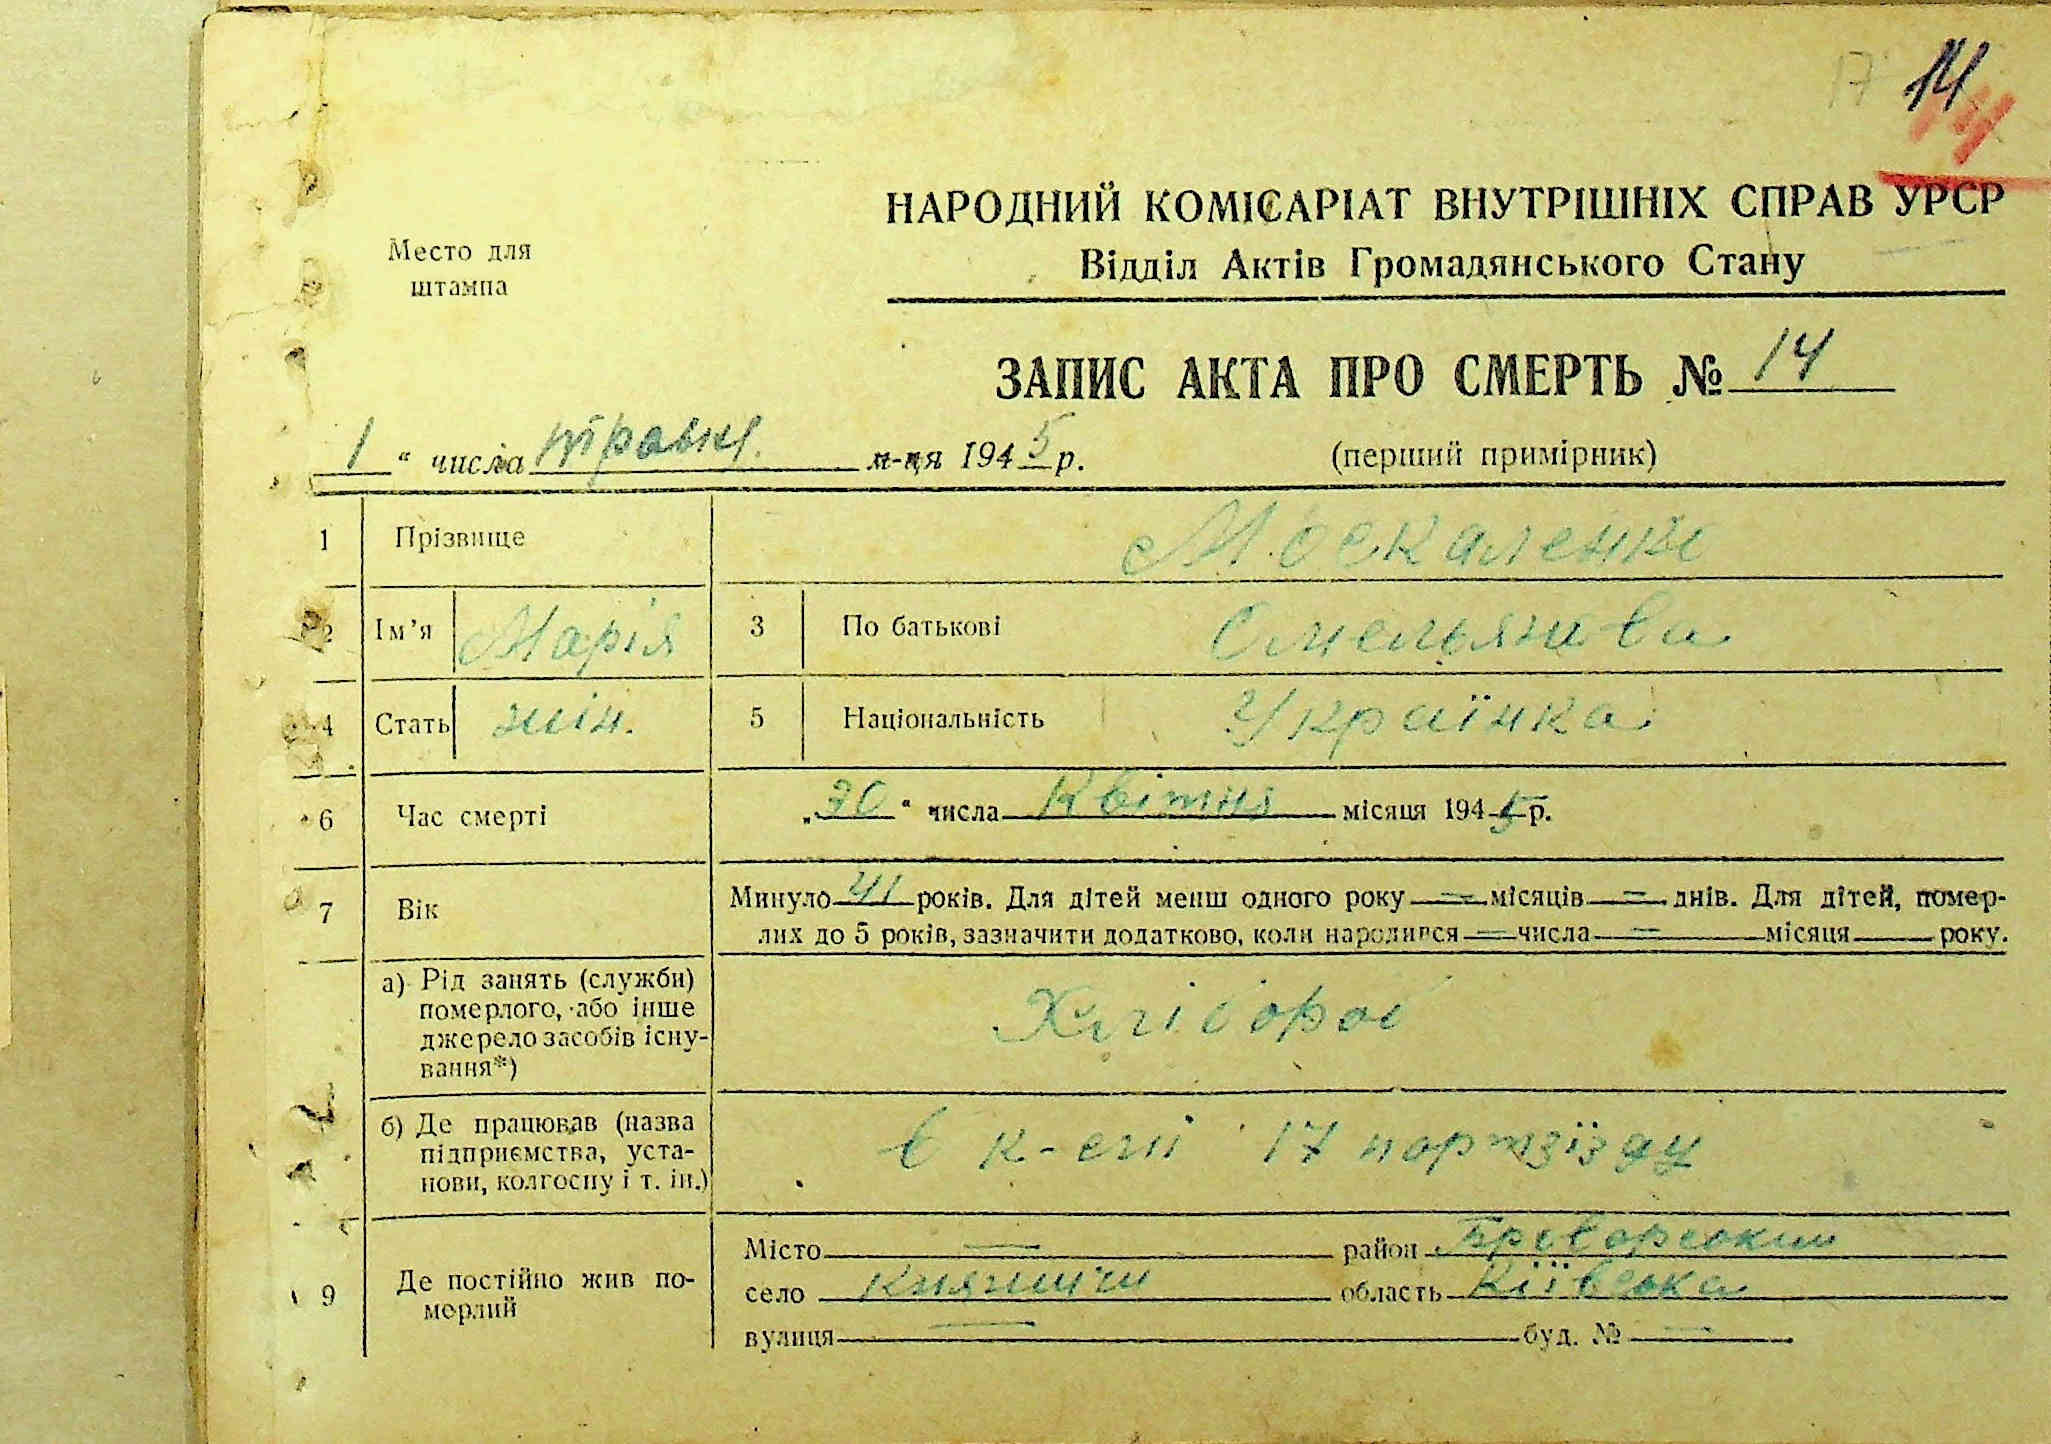 17 14
14
НАРОДНИЙ КОМІСАРІАТ ВНУТРІШНІХ СПРАВ УРСР
Відділ Актів Громадянського Стану
Место для
штампа
ЗАПИС АКТА ПРО СМЕРТЬ № 14
1 “ числа травня м-ця 1945 р.
(перший примірник)
1 Прізвище Москаленко
2 Ім’я Марія 3 По батькові Омельянова
4 Стать жін. 5 Національність Українка
6 Час смерті „30“ числа Квітня місяця 1945 р.
7 Вік Минуло 41 років. Для дітей менш одного року = місяців = днів. Для дітей, помер-
лих до 5 років, зазначити додатково, коли народився = числа = місяця року.
а) Рід занять (служби)
померлого, або інше
джерело засобів існу-
вання*)
Хлібороб
б) Де працював (назва
підприємства, уста-
нови, колгоспу і т. ін.)
в к-спі 17 партзїзду
9 Де постійно жив по-
мерлий
Місто — район Броварський
село Княжичі область Київська
вулиця — буд. № —